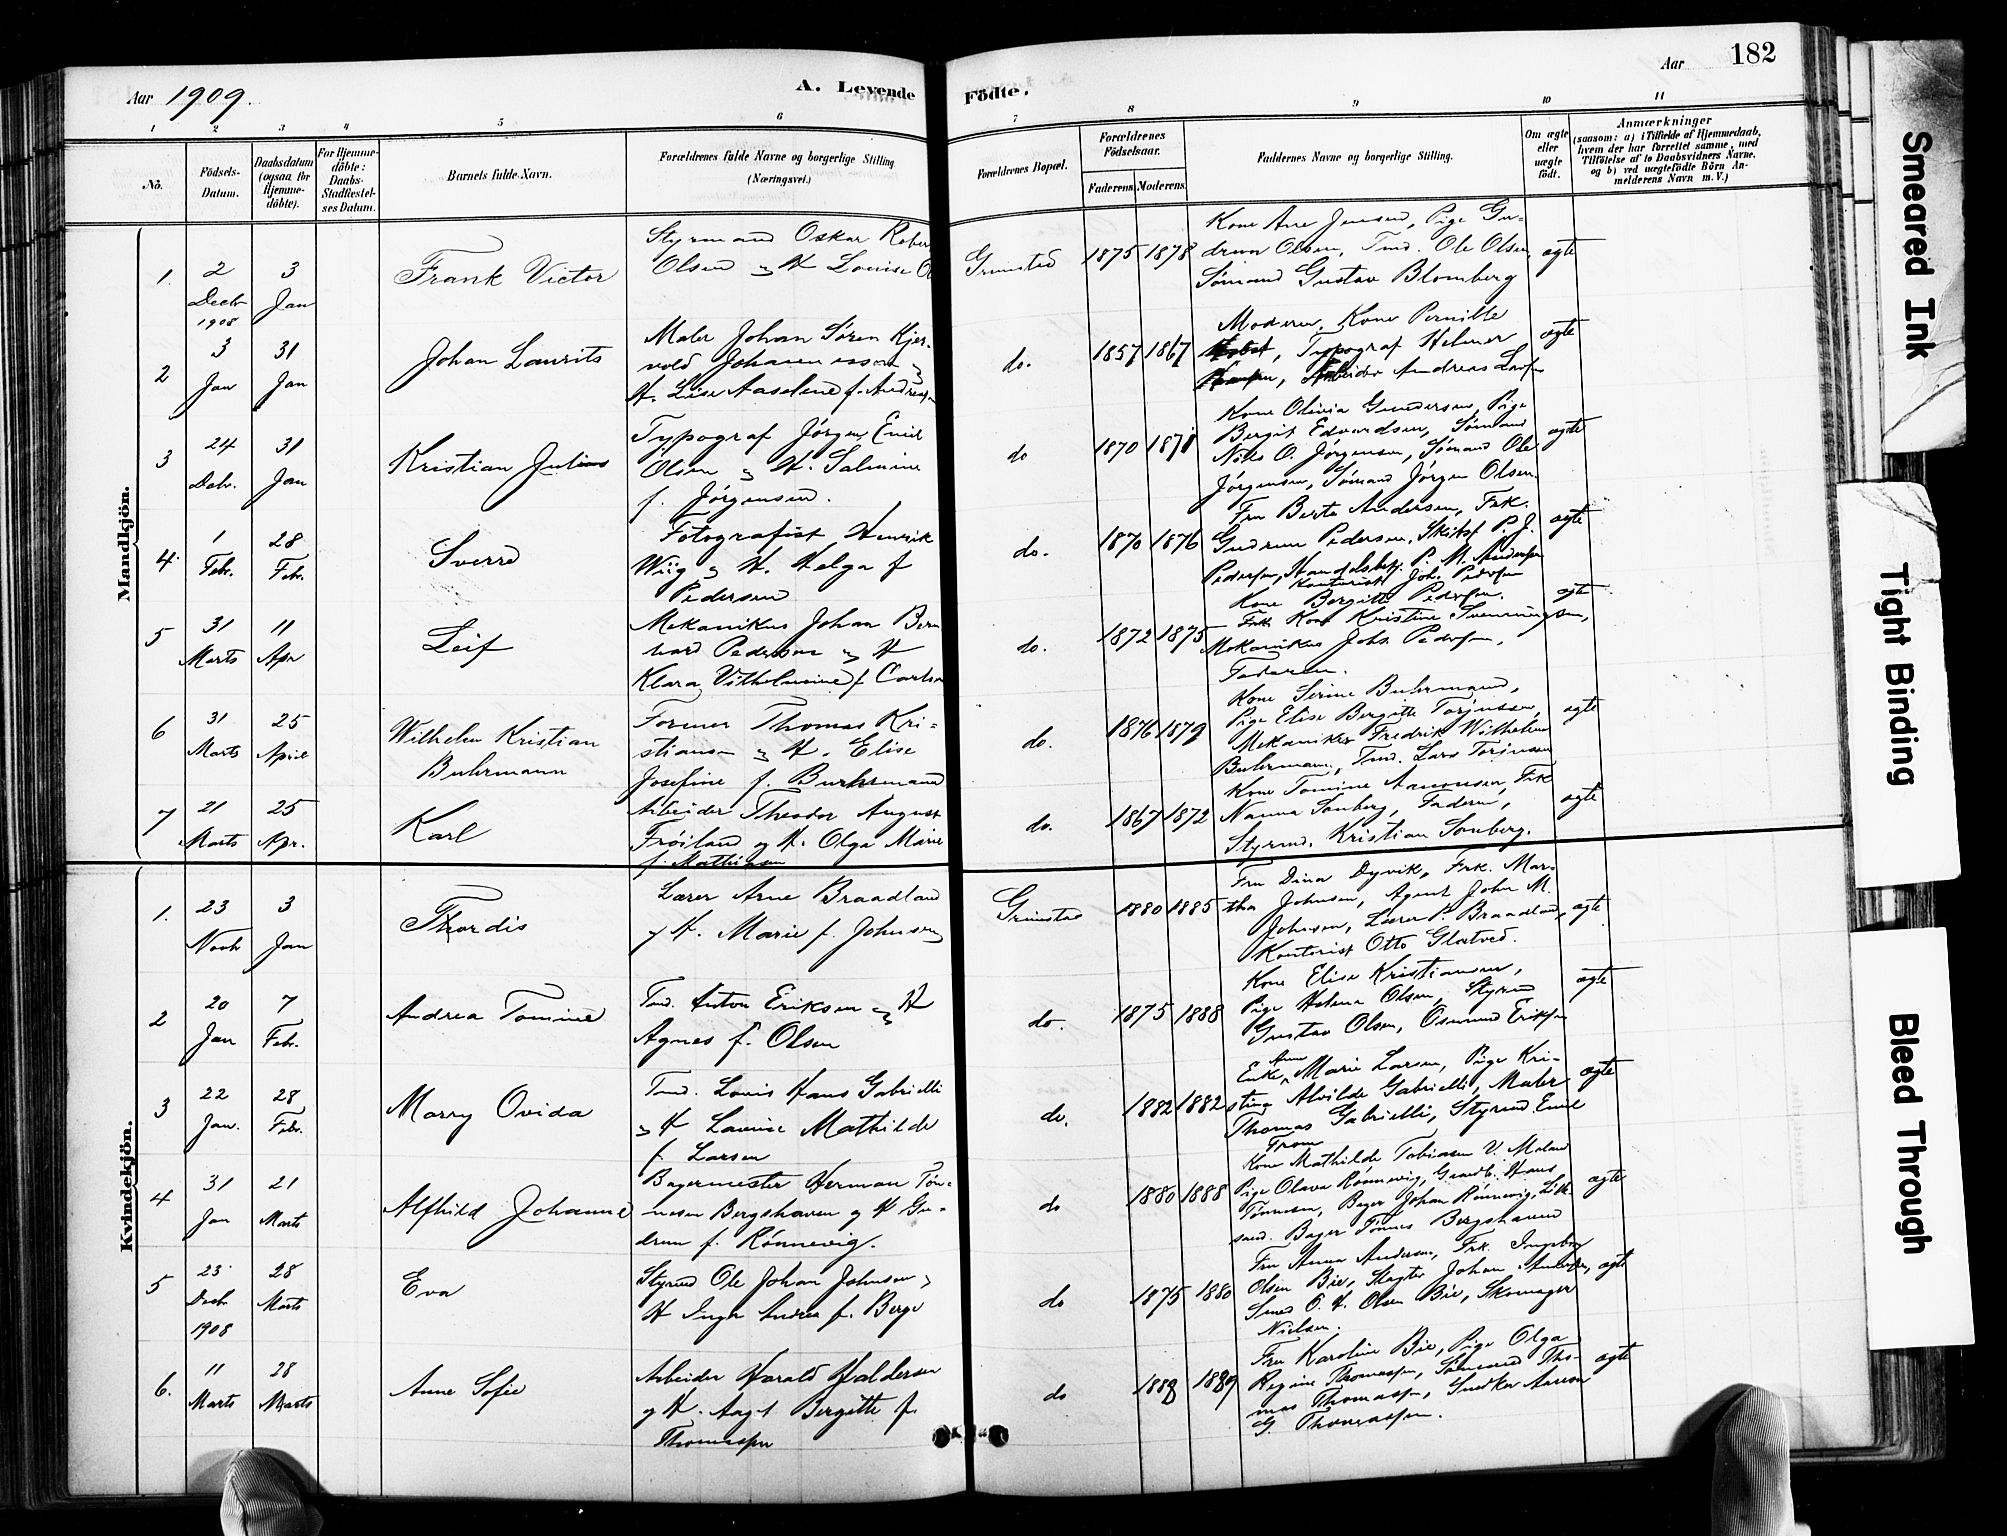 Aar 1909.
A. Levende Fødte.
Aar
182
1 2 3 4 5 6 7 8 9 10 11
No.
Fødsels-
Datum.
Daabsdatum
(ogsaa for
Hjemme-
døbte).
For Hjemme-
døbte:
Daabs-
Stadfæstel-
ses Datum.
Barnets fulde Navn.
Forældrenes fulde Navne og borgerlige Stilling
(Næringsvei.)
Forældrenes Bopæl.
Forældrenes
Fødselsaar.
Faderens. Moderens.
Faddernes Navne og borgerlige Stilling.
Om ægte
eller
uægte
født.
Anmærkninger
(saasom: a) i Tilfælde af Hjemmedaab,
hvem der har forrettet samme, med
Tilføielse af to Daabsvidners Navne,
og b) ved uægtefødte Børn An-
melderens Navn m. V.)
Mandkjøn.
1.
2
Decbr
1908
3
Jan
Frank Victor
Styrmand Oskar Rober
Olsen og H Louise
Grimstad
1875 1878
Kone Ane Jensen, Pige Gu-
drun Olsen, Tmd. Ole Olsen,
Sømand Gustav Blomberg
ægte
2
3
Jan
31
Jan
Johan Laurits
Maler Johan Søren Kjer-
vold Johannessen og
H. Lise Aaseline f. Andreas
do.
1857 1867
Moderen, Kone Pernille
Typograf Helmer
Arbeider Andreas
ægte
3
24
Debr.
31
Jan
Kristian Julius
Typograf Jørgen Emil
Olsen og H. Salmine
f. Jørgensen.
do
1870 1871
Kone Olivia Gundersen, Pige
Bergit Edvardsen, Sømand
Nils O. Jørgensen, Sømand Ole
Jørgensen, Sømand Jørgen Olsen
ægte
4.
1
Febr.
28
Febr.
Sverre
Fotografist Henrik
Wiig og H. Helga f
Pedersen
do.
1870 1876
Fru Berta Andersen, Frk.
Gudrun Pedersen, Skibsf P. J.
Pedersen, Handelsbest. P. M. Andersen
Kontorist Joh. Pedersen
ægte
5
31
Marts
11
Apr
Leif
Mekanikus Johan Bern
hard Pedersen og H
Klara Vilhelmine f Carlsen
do.
1872 1875
Kone Bergitte Pedersen.
Kone Kristine Svenningsen,
Mekanikus Johs Pedersen,
Faderen.
ægte
6
31
Marts
25
April
Wilhelm Kristian
Buhrmann
Former Thomas Kri-
stiansen og H. Elise
Josefine f. Buhrmann
do.
1876 1879
Kone Serine Buhrmann,
Pige Elise Bergitte Torjussen,
Mekaniker Fredrik Wilhelm
Buhrmann, Tmd. Lars Torjusen
ægte
7
21
Marts
25
Apr.
Karl
Arbeider Theodor August
Frøiland og H. Olga Marie
f. Mathiasen
do.
1867 1872
Kone Tomine Aanonsen, Frk
Nanna Sonberg, Faderen,
Styrmd. Kristian Sonberg.
ægte
Kvindekjøn.
1.
23
Novb
3
Jan
Thordis
Lærer Arne Braadland
og H. Marie f. Johnsen
Grimstad
1880 1885
Fru Dina Dyvik, Frk. Mar-
tha Johnsen, Agent John M.
Johnsen, Lærer P. Braadland,
Kontorist Otto Glastved.
ægte
2
20
Jan
7
Febr.
Andrea Tomine
Tmd. Anton Eriksen og H
Agnes f. Olsen
do.
1875 1888
Kone Elise Kristiansen,
Pige Helena Olsen, Styrmd
Gustav Olsen, Osmund Eriksen
ægte
3
22
Jan.
28
Febr.
Marry Ovida
Tmd. Louis Hans Gabrielli
og H Lovise Mathilde
f. Larsen
do.
1882 1882
Enke Anne Marie Larsen, Pige Kri-
stine Alvilde Gabrielli, Maler
Thomas Gabrielli, Styrmd Emil
From
ægte
4
31
Jan
21
Marts
Alfhild Johanne
Bagermester Herman Tøn-
nesen Bergshaven og H Gu-
drun f. Rønnevig.
do
1880 1888
Kone Mathilde Tobiasen V. Moland
Pige Olava Rønnevig, Gaardb. Hans
Tønnesen, Bager Johan Rønnevig, Lille-
sand. Bager Tønnes Bergshaven
ægte
5
23
Decb
1908
28
Marts
Eva
Styrmd Ole Johan Johnsen og
H Inga Andrea f. Berge
do
1875 1880
Fru Anna Andersen, Frk. Ingeborg
Olsen Bie, Slagter Johan Andersen,
Smed O. H. Olsen Bie, Skomager
Nielsen.
ægte
6.
11
Marts
28
Marts
Anne Sofie
Arbeider Harald Haldersen
og H. Aagot Bergitte f.
Thomassen
do
1888 1889
Fru Karoline Bie, Pige Olga
Regine Thomassen, Sømand Tho-
mas Thomassen, Snedker Aanon
G. Thomassen.
ægte
Smeared Ink
Tight Binding
Bleed Through